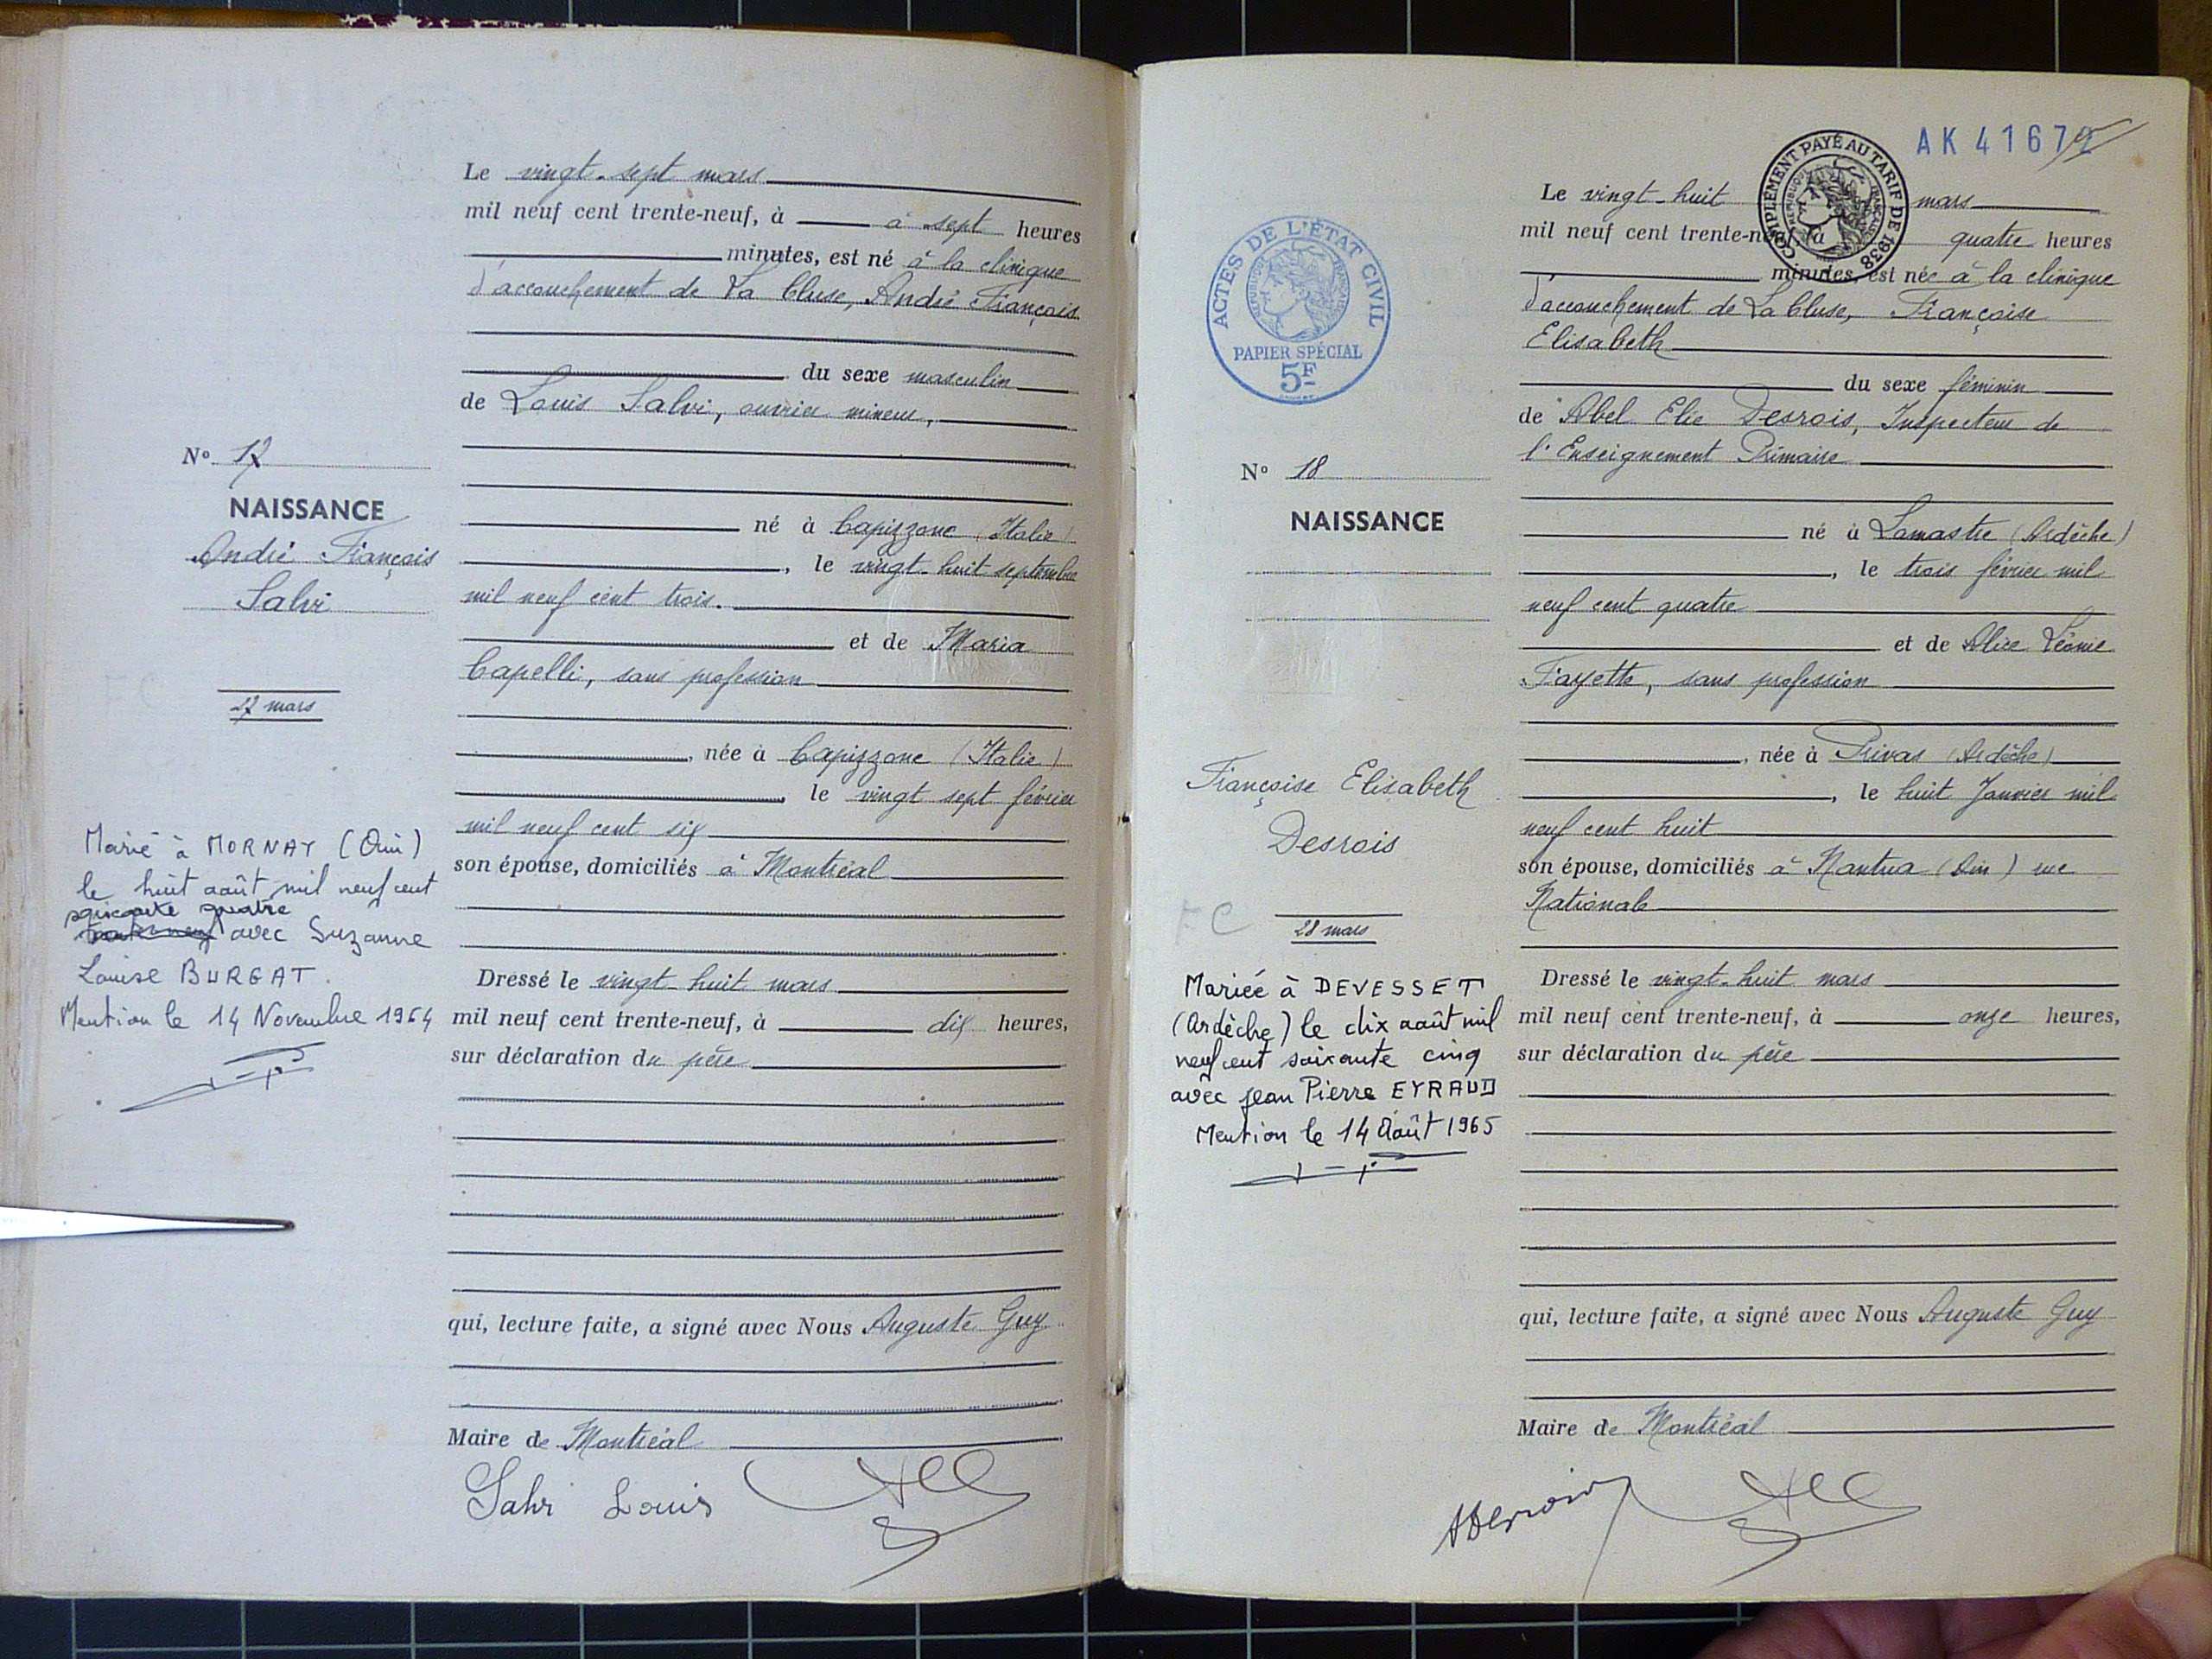 Le vingt-sept mars
mil neuf cent trente-neuf, à à sept heures
minutes, est né à la clinique
d'accouchement de La Cluse, André François
du sexe masculin
de Louis Salvi, ouvrier mineur,
N° 17
NAISSANCE
André François
Salvi
27 mars
né à Capizzone (Italie)
, le vingt-huit septembre
mil neuf cent trois.
et de Maria
Capelli, sans profession
, née à Capizzone (Italie)
, le vingt sept février
mil neuf cent six
son épouse, domiciliés à Montréal
Marié à MORNAY (Ain)
le huit août mil neuf cent
soixante quatre
avec Suzanne
Louise BURGAT.
Mention le 14 Novembre 1964
Dressé le vingt-huit mars
mil neuf cent trente-neuf, à dix heures,
sur déclaration du père
qui, lecture faite, a signé avec Nous Auguste Guy
Maire de Montréal
Salvi Louis
AK 41672
COMPLÉMENT PAYÉ AU TARIF DE 1938
RÉPUBLIQUE FRANÇAISE
ACTES DE L'ÉTAT CIVIL
RÉPUBLIQUE FRANÇAISE
PAPIER SPÉCIAL
5F
Le vingt-huit mars
mil neuf cent trente-neuf, à quatre heures
minutes, est née à la clinique
d'accouchement de La Cluse, Françoise
Elisabeth
du sexe féminin
de Abel Elie Desrois, Inspecteur de
l'Enseignement Primaire
N° 18
NAISSANCE
Françoise Elisabeth
Desrois
FC
28 mars
né à Lamastre (Ardèche)
, le trois février mil
neuf cent quatre
et de Alice Léonie
Fayette, sans profession
, née à Privas (Ardèche)
, le huit Janvier mil
neuf cent huit
son épouse, domiciliés à Nantua (Ain) rue
Nationale
Mariée à DEVESSET
(Ardèche) le dix août mil
neuf cent soixante cinq
avec Jean Pierre EYRAUD
Mention le 14 Août 1965
Dressé le vingt-huit mars
mil neuf cent trente-neuf, à onze heures,
sur déclaration du père
qui, lecture faite, a signé avec Nous Auguste Guy
Maire de Montréal
ADesrois